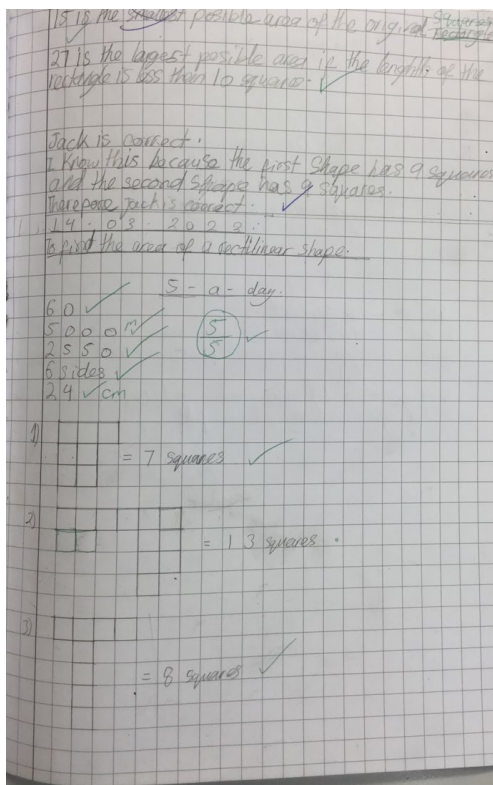 15 is the smallest posible area of the original Squares rectangle
27 is the largest posible area if the length of the
rectangle is less than 10 squares.
Jack is correct.
I Know this because the first Shape has 9 squares
and the second Shape has 9 squares.
Therefore Jack is correct.
14.03.2022.
To find the area of a rectilinear shape.
5-a-day.
60
5000m
2550
6 sides
24 cm
5
5
1)
= 7 squares
2)
= 13 squares.
3)
= 8 squares